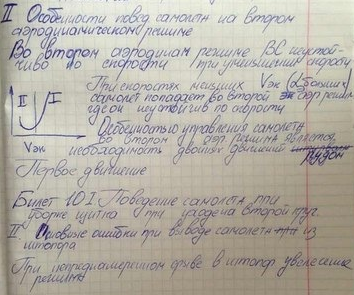 II Особенности повед самолета на втором
аэродинамическом режиме
Во втором аэродинам режиме ВС неустой-
чиво по скорости при уменьшении скорости
При скоростях меньших Vэк (α больших)
самолет попадает во второй аэр режим
II I
где он неустойчив по скорости
Особенностью управления самолета
во втором аэр. режима является
Vэк
необходимость двойных движений
РУДом
Первое движение
Билет 10 I Поведение самолета при
уборке щитка при уходе на второй круг
II Основные ошибки при выводе самолета из
штопора
При непреднамеренном срыве в штопор увеличение
режима